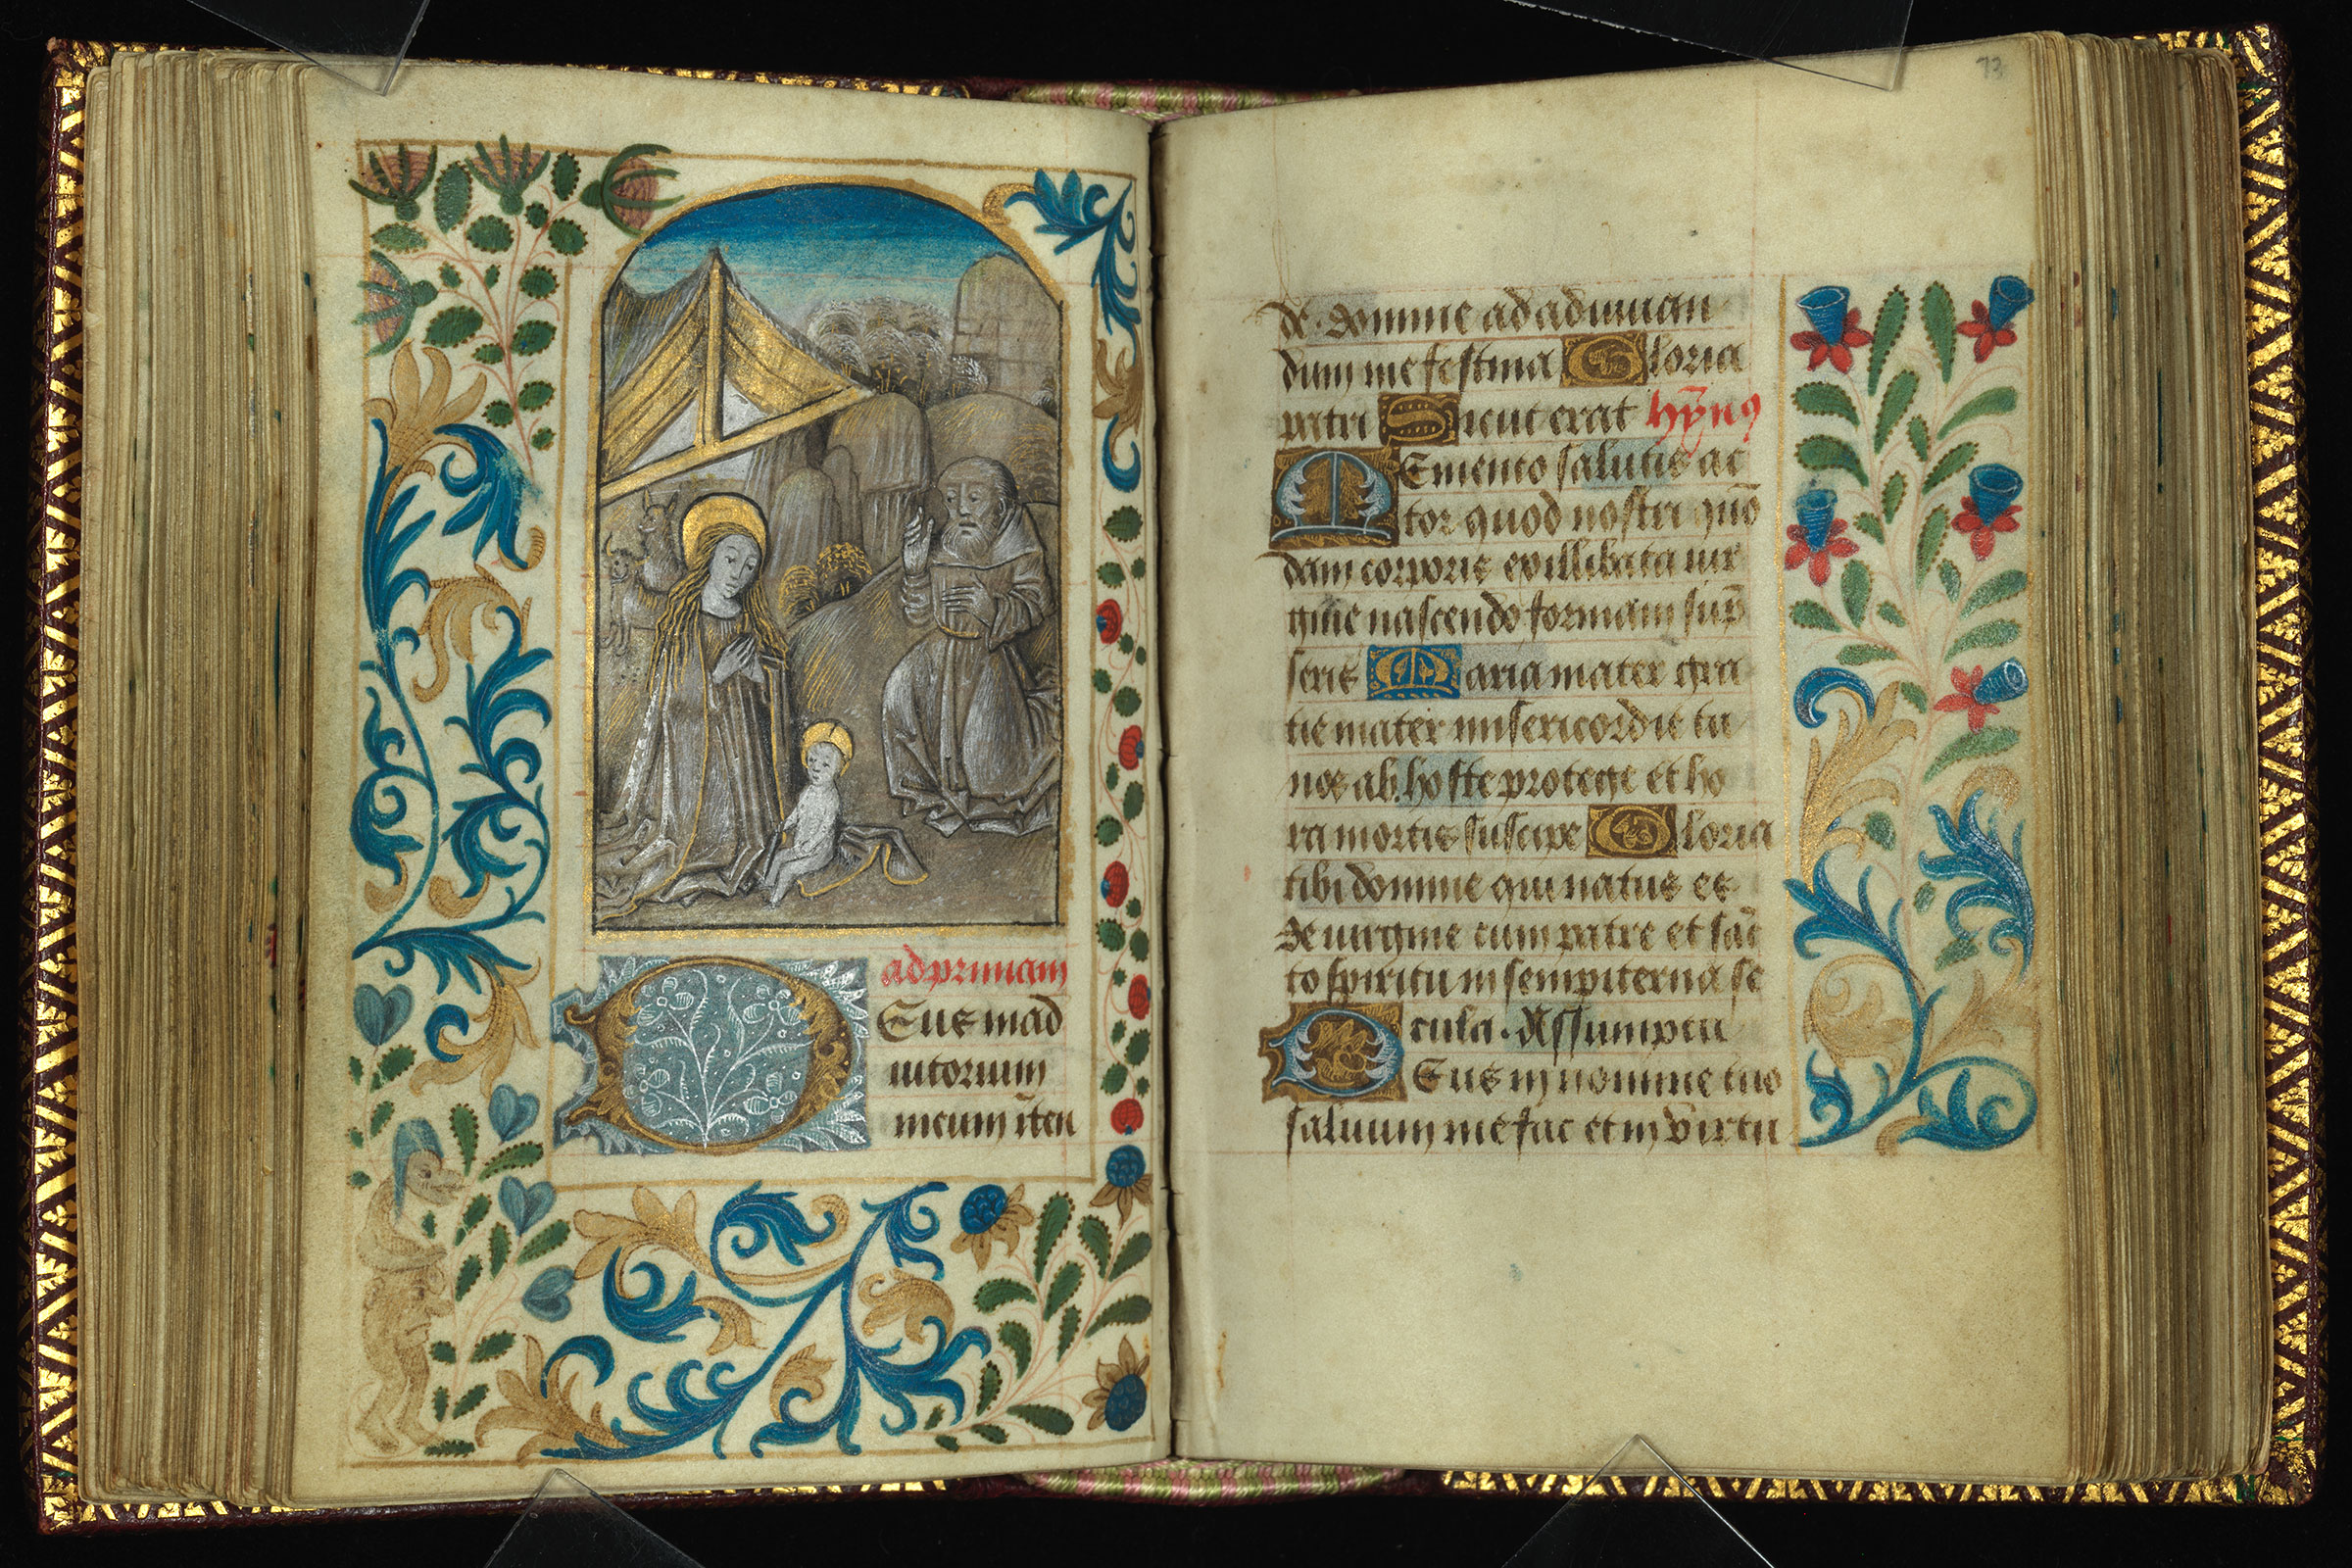 ad primam
Deus in ad
iutorium
meum īten
73
de · domine ad adiuuan
dum me festina Gloria
patri Sicut erat hȳnꝯ
Memento salutis ac
tor quod nostri quō
dam corporis ex illibata uir
gine nascendo formam sūp
seris Maria mater gra
tie mater misericordie tu
nos ab hoste protege et ho
ra mortis suscipe Gloria
tibi domine qui natus es
de uirgine cum patre et sāc
to spiritu in sempiterna se
cula · Assumpta
Deus in nomine tuo
saluum me fac et in virtu